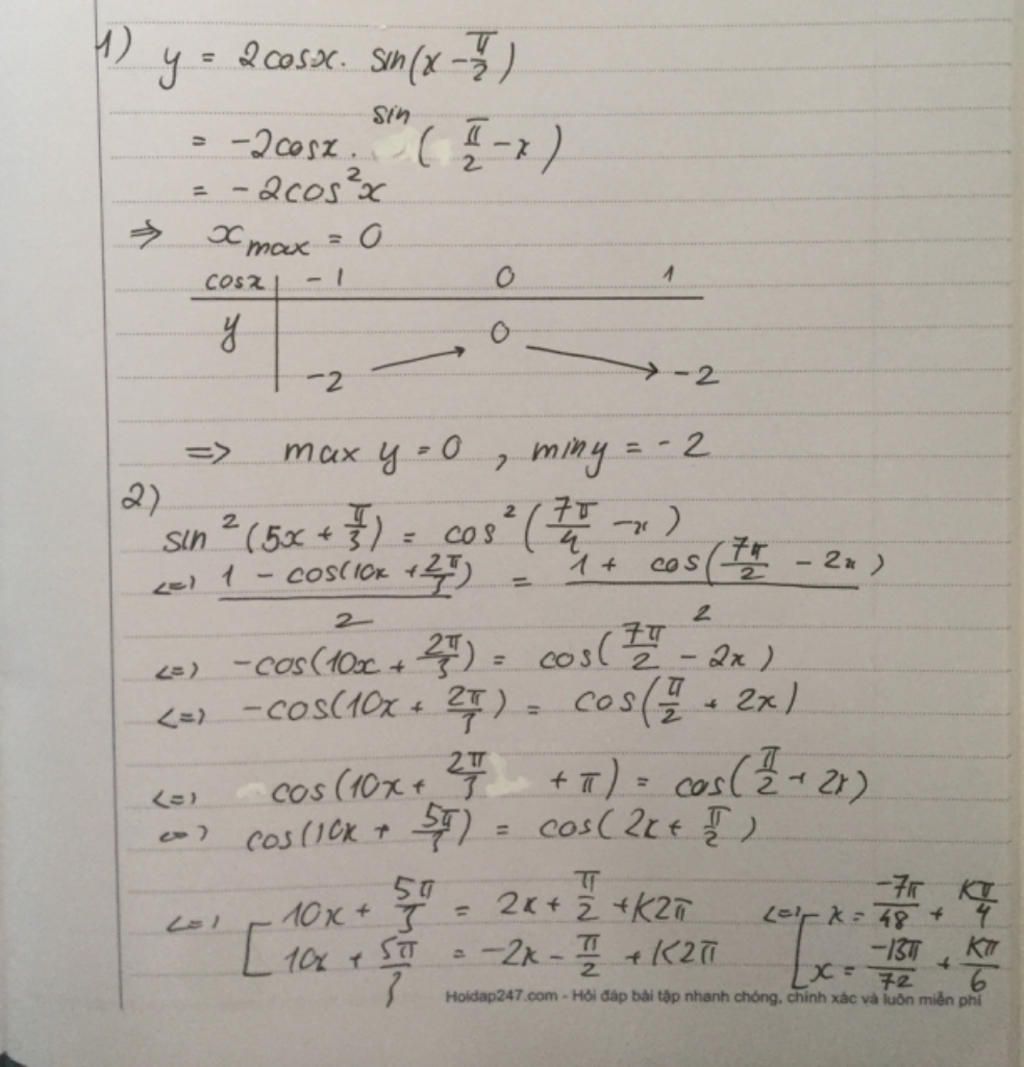 1) y = 2cosx. sin(x - π/2)
= -2cosx. sin(π/2 - x)
= -2cos²x
=> x max = 0
cosx | -1 0 1
y | -2 0 -2
=> max y = 0 , min y = -2
2)
sin²(5x + π/3) = cos²(7π/4 - x)
<=> (1 - cos(10x + 2π/3))/2 = (1 + cos(7π/2 - 2x))/2
<=> -cos(10x + 2π/3) = cos(7π/2 - 2x)
<=> -cos(10x + 2π/3) = cos(π/2 + 2x)
<=> cos(10x + 2π/3 + π) = cos(π/2 + 2x)
<=> cos(10x + 5π/3) = cos(2x + π/2)
<=> [ 10x + 5π/3 = 2x + π/2 + K2π <=> [ x = -7π/48 + Kπ/4
10x + 5π/3 = -2x - π/2 + K2π x = -13π/72 + Kπ/6
Hoidap247.com - Hỏi đáp bài tập nhanh chóng, chính xác và luôn miễn phí